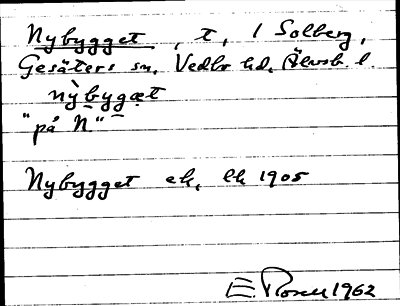 Nybygget, t, / Solberg,
Gesäters sn, Vedbo hd, Älvsb. l.
nỳbygæt
"på N"
Nybygget ek, lk 1905
E. Rosell 1962